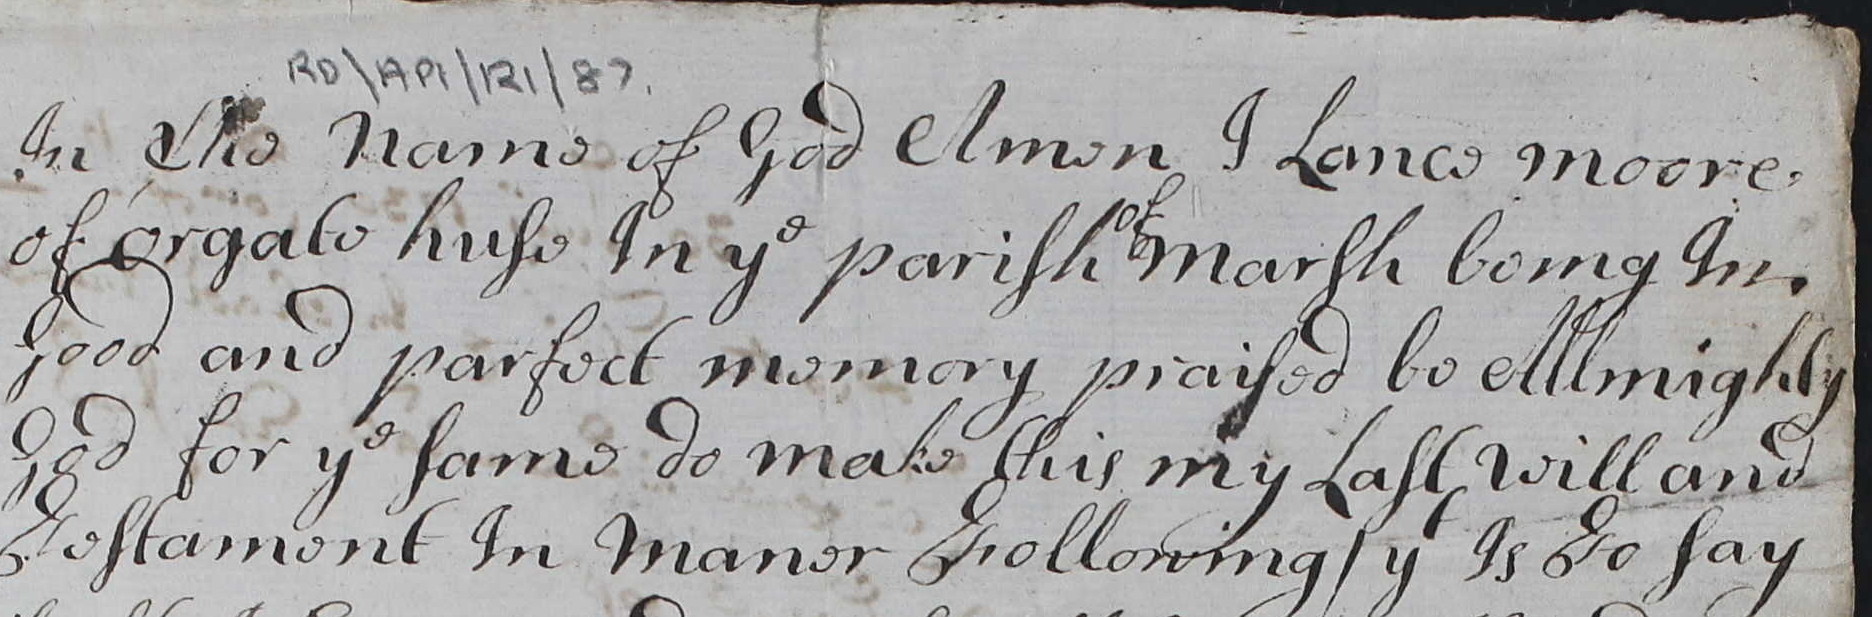 RD\AP1/121/87.
In the Name of God Amen I Lance moore
of orgate huse In ye parish of marsh being In
Good and parfect memory praised be Allmighty
God for ye same do make this my Last will and
Testament In maner Following / yt Is To say